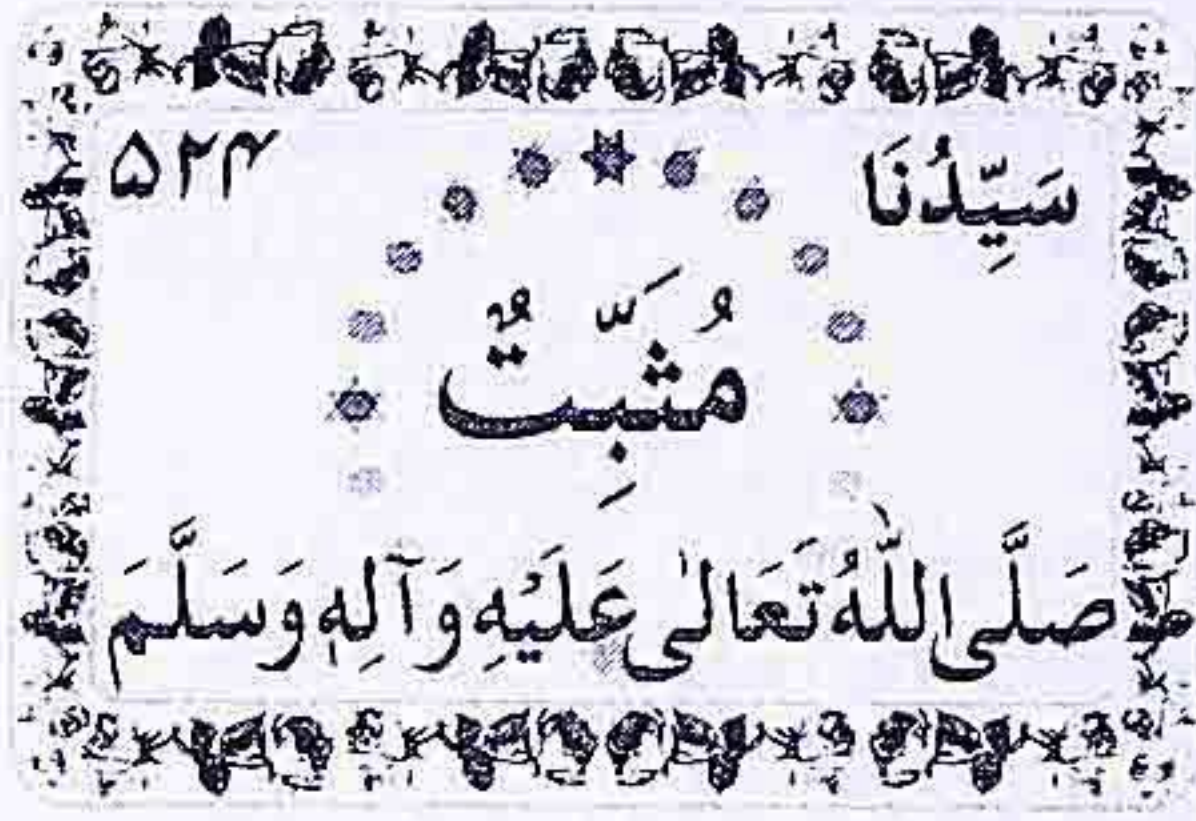 سَيِّدُنَا ۵۲۴
مُثَبِّتٌ
صَلَّی اللّٰهُ تَعَالٰی عَلَيْهِ وَآلِهٖ وَسَلَّمَ